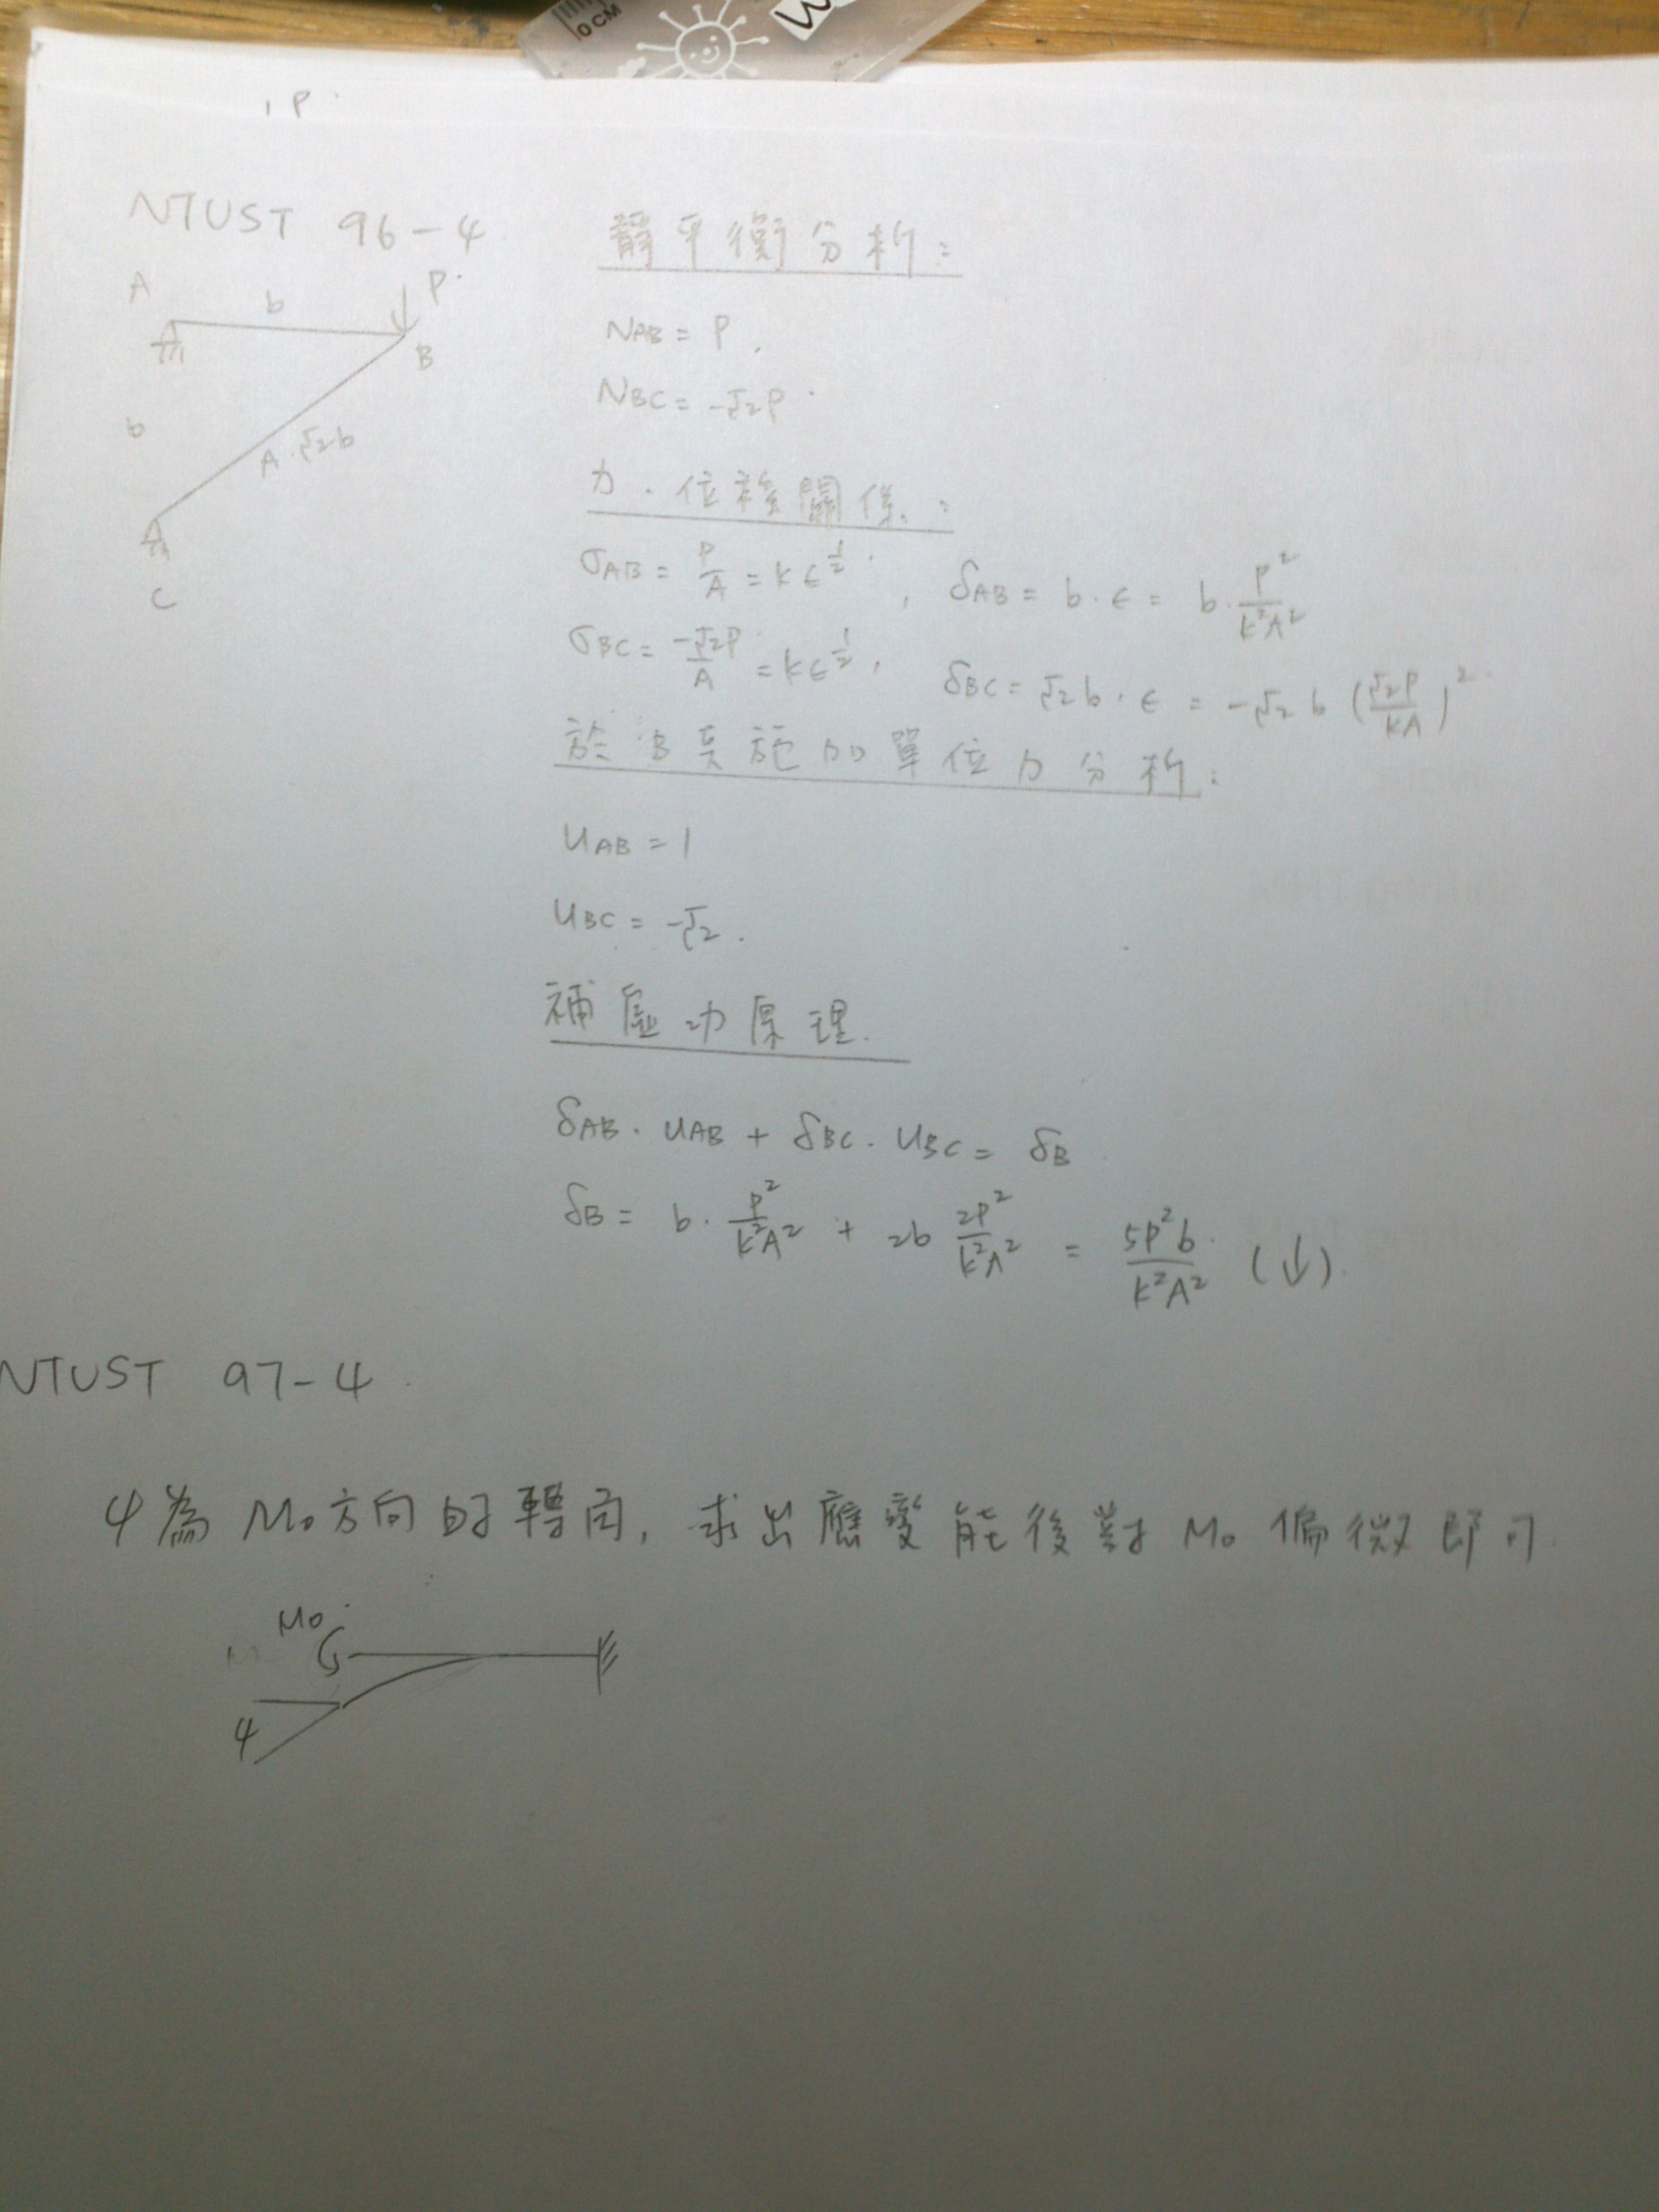 0 CM
W
1 P
NTUST 96-4
A
b
P
B
b
A. √2b
C
靜平衡分析:
NAB = P.
NBC = -√2P
力.位移關係:
σAB = P/A = kϵ^(1/2), δAB = b·ϵ = b·P²/k²A²
σBC = -√2P/A = kϵ^(1/2), δBC = √2b·ϵ = -√2b(√2P/kA)²
於B點施加單位力分析:
uAB = 1
uBC = -√2.
補虛功原理.
δAB·uAB + δBC·uBC = δB
δB = b·P²/k²A² + 2b 2P²/k²A² = 5P²b/k²A² (↓).
NTUST 97-4.
4為M₀方向的轉角, 求出應變能後對M₀偏微即可
M₀
M
4